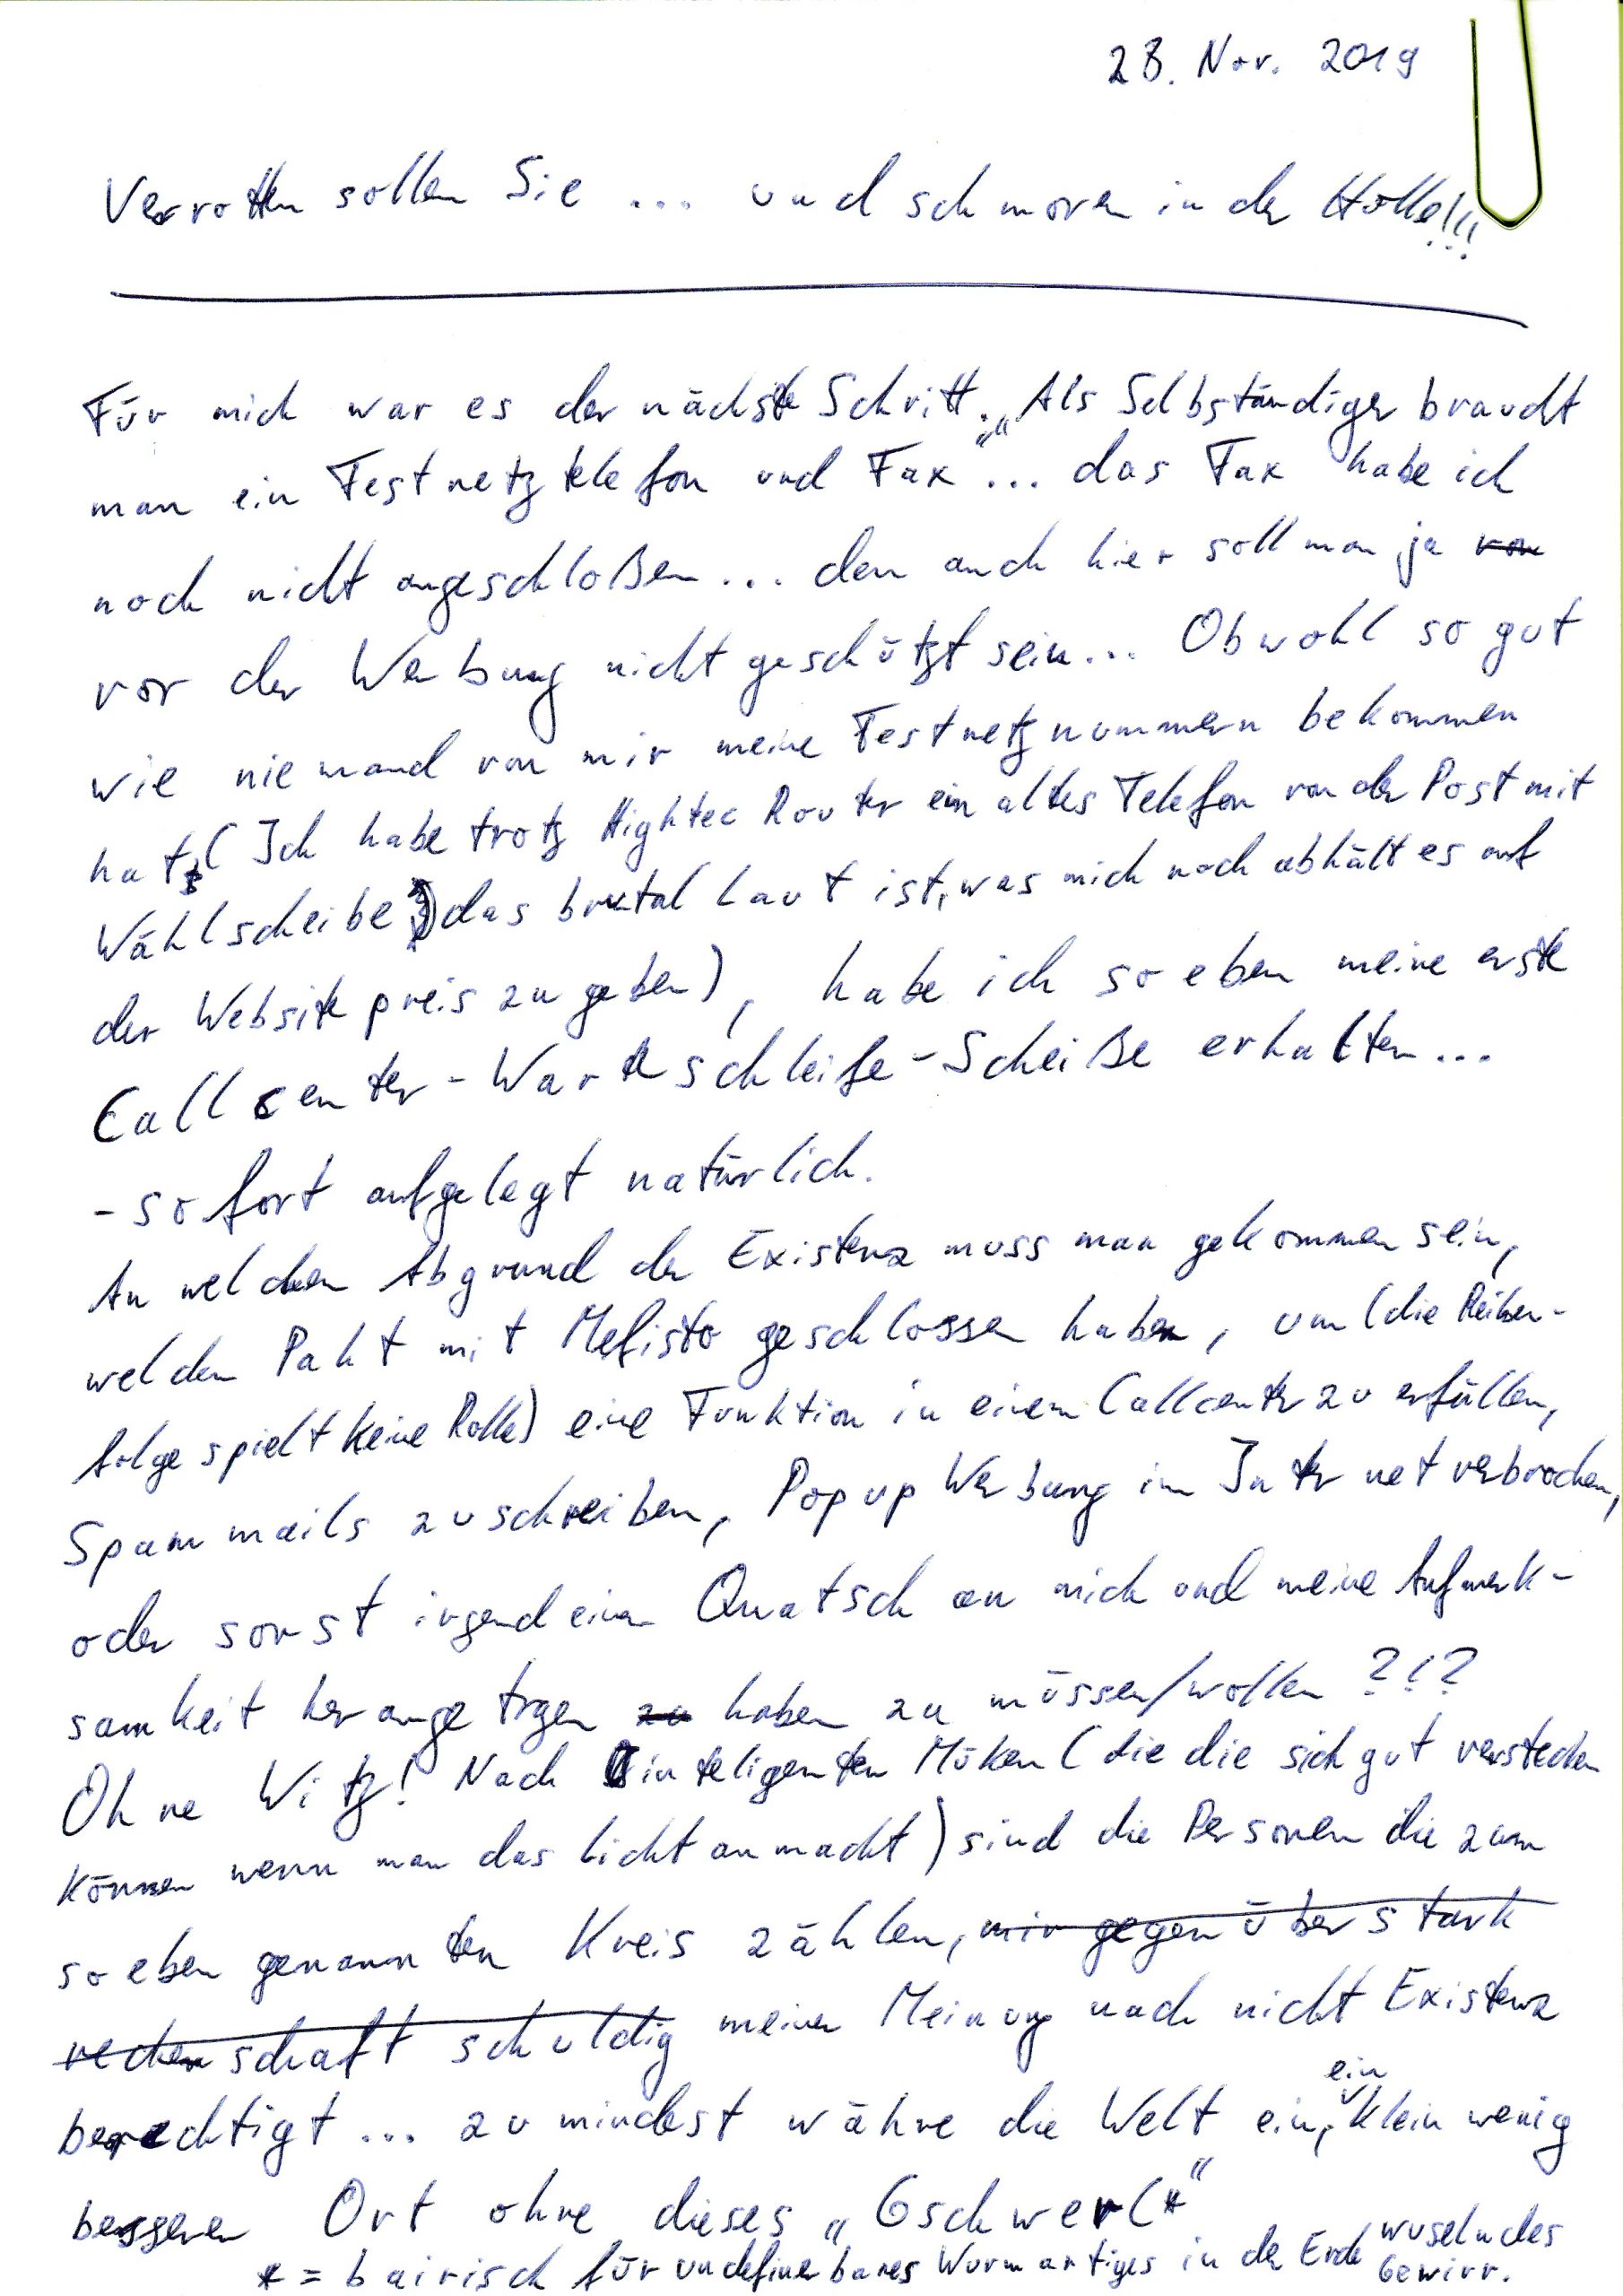 28. Nov. 2019
Verrotten sollen Sie ... und schmoren in der Hölle!!!
Für mich war es der nächste Schritt. „Als Selbständiger braucht
man ein Festnetztelefon und Fax“... das Fax habe ich
noch nicht angeschloßen... den auch hier soll man ja von
vor der Werbung nicht geschützt sein... Obwohl so gut
wie niemand von mir meine Festnetznummern bekommen
hat, (Ich habe trotz Hightec Router ein altes Telefon von der Post mit
Wählscheibe das brutal laut ist, was mich noch abhält es auf
der Website preis zu geben), habe ich so eben meine erste
Callcenter-Warteschleife-Scheiße erhalten...
- sofort aufgelegt natürlich.
An welchen Abgrund der Existenz muss man gekommen sein,
welchen Pakt mit Mefisto geschlossen haben, um (die Reihen-
folge spielt keine Rolle) eine Funktion in einem Callcenter zu erfüllen,
Spam mails zu schreiben, Pop up Werbung im Internet verbrochen,
oder sonst irgend einen Quatsch an mich und meine Aufmerk-
samkeit herangetragen zu haben zu müssen/wollen ?!?
Ohne Witz! Nach inteligenten Müken (die die sich gut verstecken
können wenn man das Licht anmacht) sind die Personen die zum
so eben genannten Kreis zählen, mir gegenüber stark
rechenschaft schuldig meiner Meinung nach nicht Existenz
berechtigt ... zu mindest währe die Welt ein, ein klein wenig
besserer Ort ohne dieses „Gschwerl*“
* = bairisch für undefinerbares Wurmartiges in der Erde wuselndes
Gewirr.